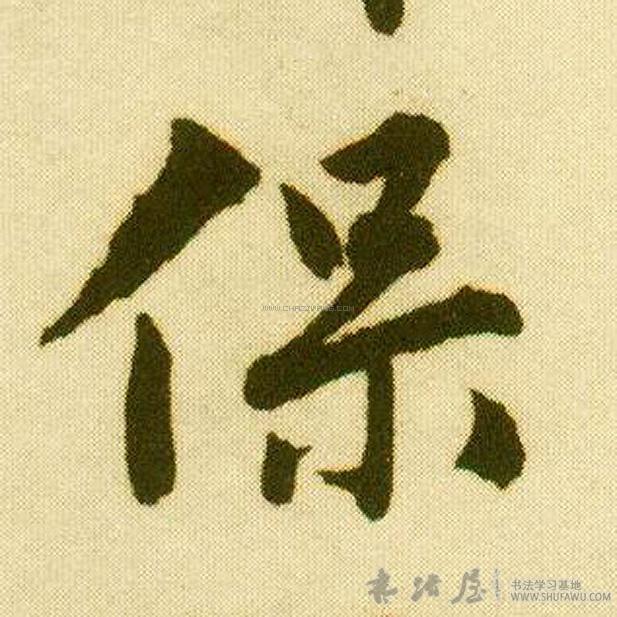 保
WWW.CHAOZIWANG.COM
书法屋
书法学习基地
WWW.SHUFAWU.COM